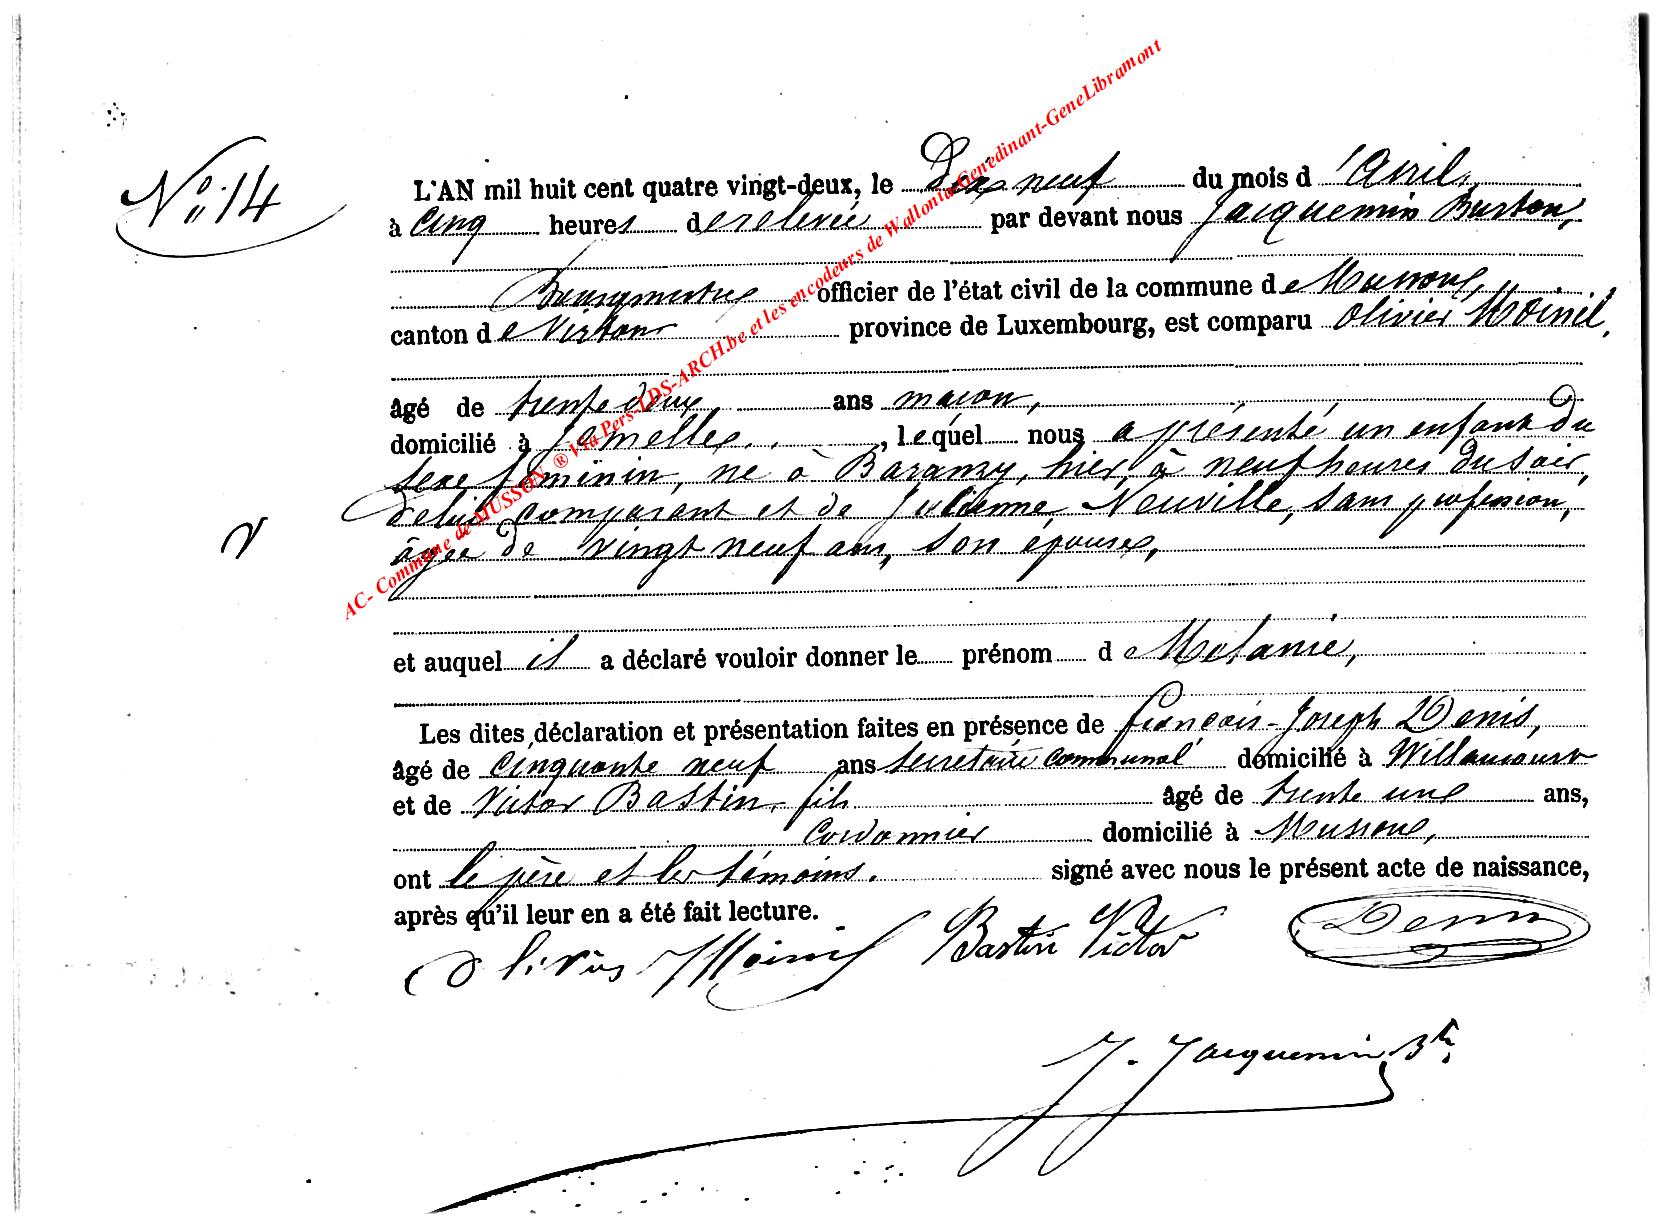 N° 14
L'AN mil huit cent quatre vingt-deux, le Dix neuf du mois d'Avril,
à cinq heures de relevée par devant nous Jacquemin Burton,
Bourgmestre officier de l'état civil de la commune de Musson,
canton de Virton province de Luxembourg, est comparu Olivier Moinil,
âgé de trente deux ans maçon,
domicilié à Jemelle, lequel nous a présenté un enfant du
sexe féminin, né à Baranzy, hier, à neuf heures du soir,
de lui comparant et de Julienne Neuville, sans profession,
âgée de vingt neuf ans, son épouse,
et auquel il a déclaré vouloir donner le prénom de Mélanie,
Les dites déclaration et présentation faites en présence de François-Joseph Denis,
âgé de cinquante neuf ans secrétaire communal domicilié à Willancourt
et de Victor Bastin, fils âgé de trente une ans,
cordonnier domicilié à Musson,
ont le père et les témoins. signé avec nous le présent acte de naissance,
après qu'il leur en a été fait lecture.
Olivier Moinil Bastin Victor Denis
J. Jacquemin Bth
AC- Commune de MUSSON ® Via Pers-LDS-ARCH.be et les encodeurs de Wallonia-Genedinant-GeneLibramont